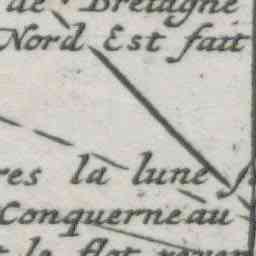 de Bretagne
Nord Est fait
res la lune
Conquerneau
t le flot